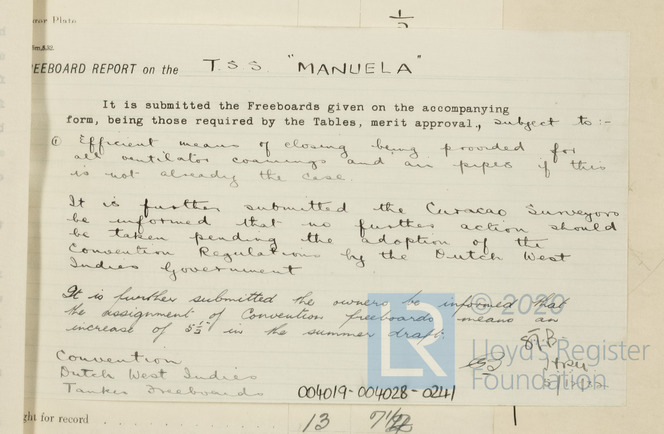 FREEBOARD REPORT on the T.S.S. "MANUELA"
It is submitted the Freeboards given on the accompanying
form, being those required by the Tables, merit approval., subject to :-
① Efficient means of closing being provided for
all ventilator coamings and air pipes if this
is not already the case.
It is further submitted the Curacao Surveyors
be informed that no further action should
be taken pending the adoption of the
Convention Regulations by the Dutch West
Indies Government
It is further submitted the owners be informed that
the assignment of Convention freeboards means an
increase of in the summer draft.
Convention
Dutch West Indies
Tanker Freeboards
004019-004028-0241
ght for record 13
© 2020
Lloyd's Register
Foundation
LR